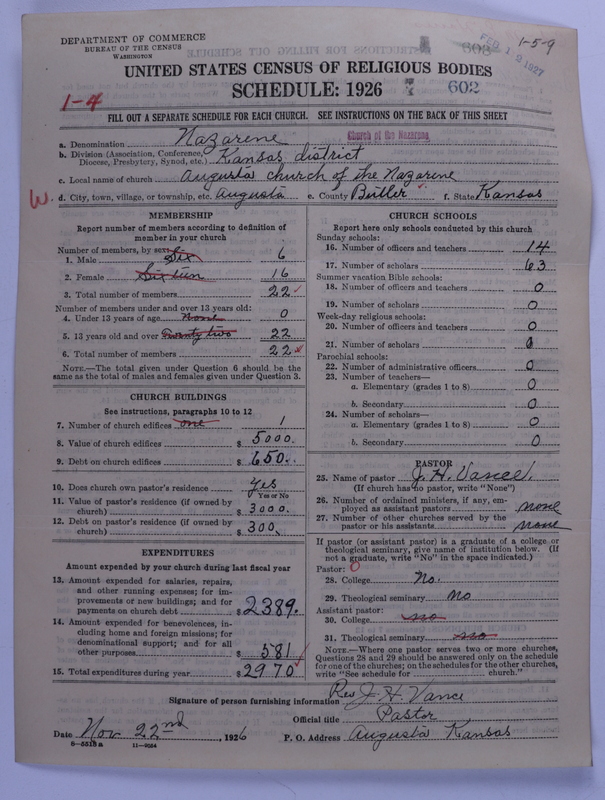 DEPARTMENT OF COMMERCE
BUREAU OF THE CENSUS
WASHINGTON
603
FEB 12 1927
1-5-9
UNITED STATES CENSUS OF RELIGIOUS BODIES
SCHEDULE: 1926
602
1-4
FILL OUT A SEPARATE SCHEDULE FOR EACH CHURCH. SEE INSTRUCTIONS ON THE BACK OF THIS SHEET
a. Denomination Nazarene Church of the Nazarene
b. Division (Association, Conference, Diocese, Presbytery, Synod, etc.) Kansas district
c. Local name of church Augusta church of the Nazarene
W. d. City, town, village, or township, etc. Augusta e. County Butler f. State Kansas
MEMBERSHIP
Report number of members according to definition of
member in your church
Number of members, by sex:
1. Male Six 6
2. Female Sixteen 16
3. Total number of members 22
Number of members under and over 13 years old:
4. Under 13 years of age none 0
5. 13 years old and over Twenty two 22
6. Total number of members 22
NOTE.—The total given under Question 6 should be
same as the total of males and females given under Question 3.
CHURCH BUILDINGS
See instructions, paragraphs 10 to 12
7. Number of church edifices one 1
8. Value of church edifices $ 5000.
9. Debt on church edifices $ 650.
10. Does church own pastor's residence yes
Yes or No
11. Value of pastor's residence (if owned by
church) $ 3000.
12. Debt on pastor's residence (if owned by
church) $ 300.
EXPENDITURES
Amount expended by your church during last fiscal year
13. Amount expended for salaries, repairs,
and other running expenses; for im-
provements or new buildings; and for
payments on church debt $ 2389.
14. Amount expended for benevolences, in-
cluding home and foreign missions; for
denominational support; and for all
other purposes $ 581
15. Total expenditures during year $ 2970
CHURCH SCHOOLS
Report here only schools conducted by this church
Sunday schools:
16. Number of officers and teachers 14
17. Number of scholars 63
Summer vacation Bible schools:
18. Number of officers and teachers 0
19. Number of scholars 0
Week-day religious schools:
20. Number of officers and teachers 0
21. Number of scholars 0
Parochial schools:
22. Number of administrative officers 0
23. Number of teachers—
a. Elementary (grades 1 to 8) 0
b. Secondary 0
24. Number of scholars—
a. Elementary (grades 1 to 8) 0
b. Secondary 0
PASTOR
25. Name of pastor J. H. Vance.
(If church has no pastor, write "None")
26. Number of ordained ministers, if any, em-
ployed as assistant pastors none
27. Number of other churches served by the
pastor or his assistants none
If pastor (or assistant pastor) is a graduate of a college or
theological seminary, give name of institution below. (If
not a graduate, write "No" in the space indicated.)
Pastor: 0
28. College No.
29. Theological seminary No
Assistant pastor:
30. College no
31. Theological seminary no
NOTE.—Where one pastor serves two or more churches,
Questions 28 and 29 should be answered only on the schedule
for one of the churches; on the schedules for the other churches,
write "See schedule for church."
Signature of person furnishing information Rev J. H. Vance
Official title Pastor
Date Nov 22nd, 1926 P. O. Address Augusta Kansas
8-5518a 11-9054